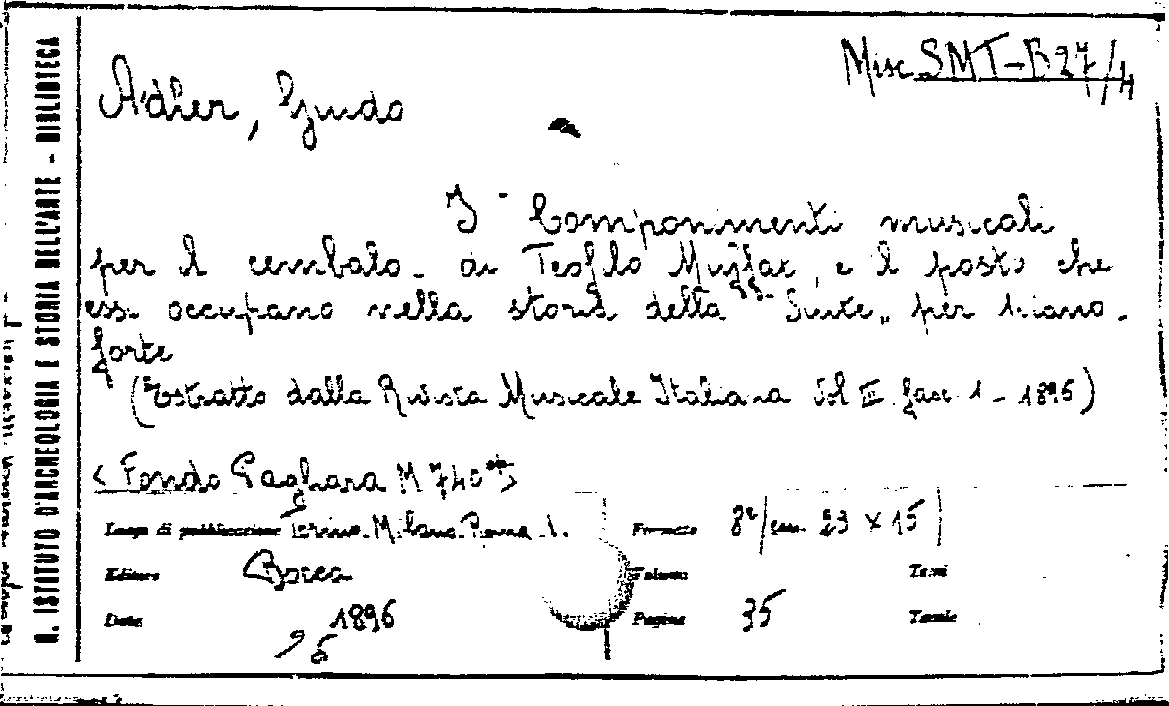 R. ISTITUTO D'ARCHEOLOGIA E STORIA DELL'ARTE - BIBLIOTECA
Misc SMT-B27/4
Adler, Guido
I Componimenti musicali
per il cembalo di Teofilo Muffat, e il posto che
essi occupano nella storia della "Suite" per piano-
forte
(Estratto dalla Rivista Musicale Italiana Vol III fasc 1 - 1896)
< Fondo Pagliara M 740
Luogo di pubblicazione Torino. Milano. Roma
Formato 8º/cm. 23 x 15
Editore Bocca
Volumi
Tomi
Data 1896
Pagine 35
Tavole